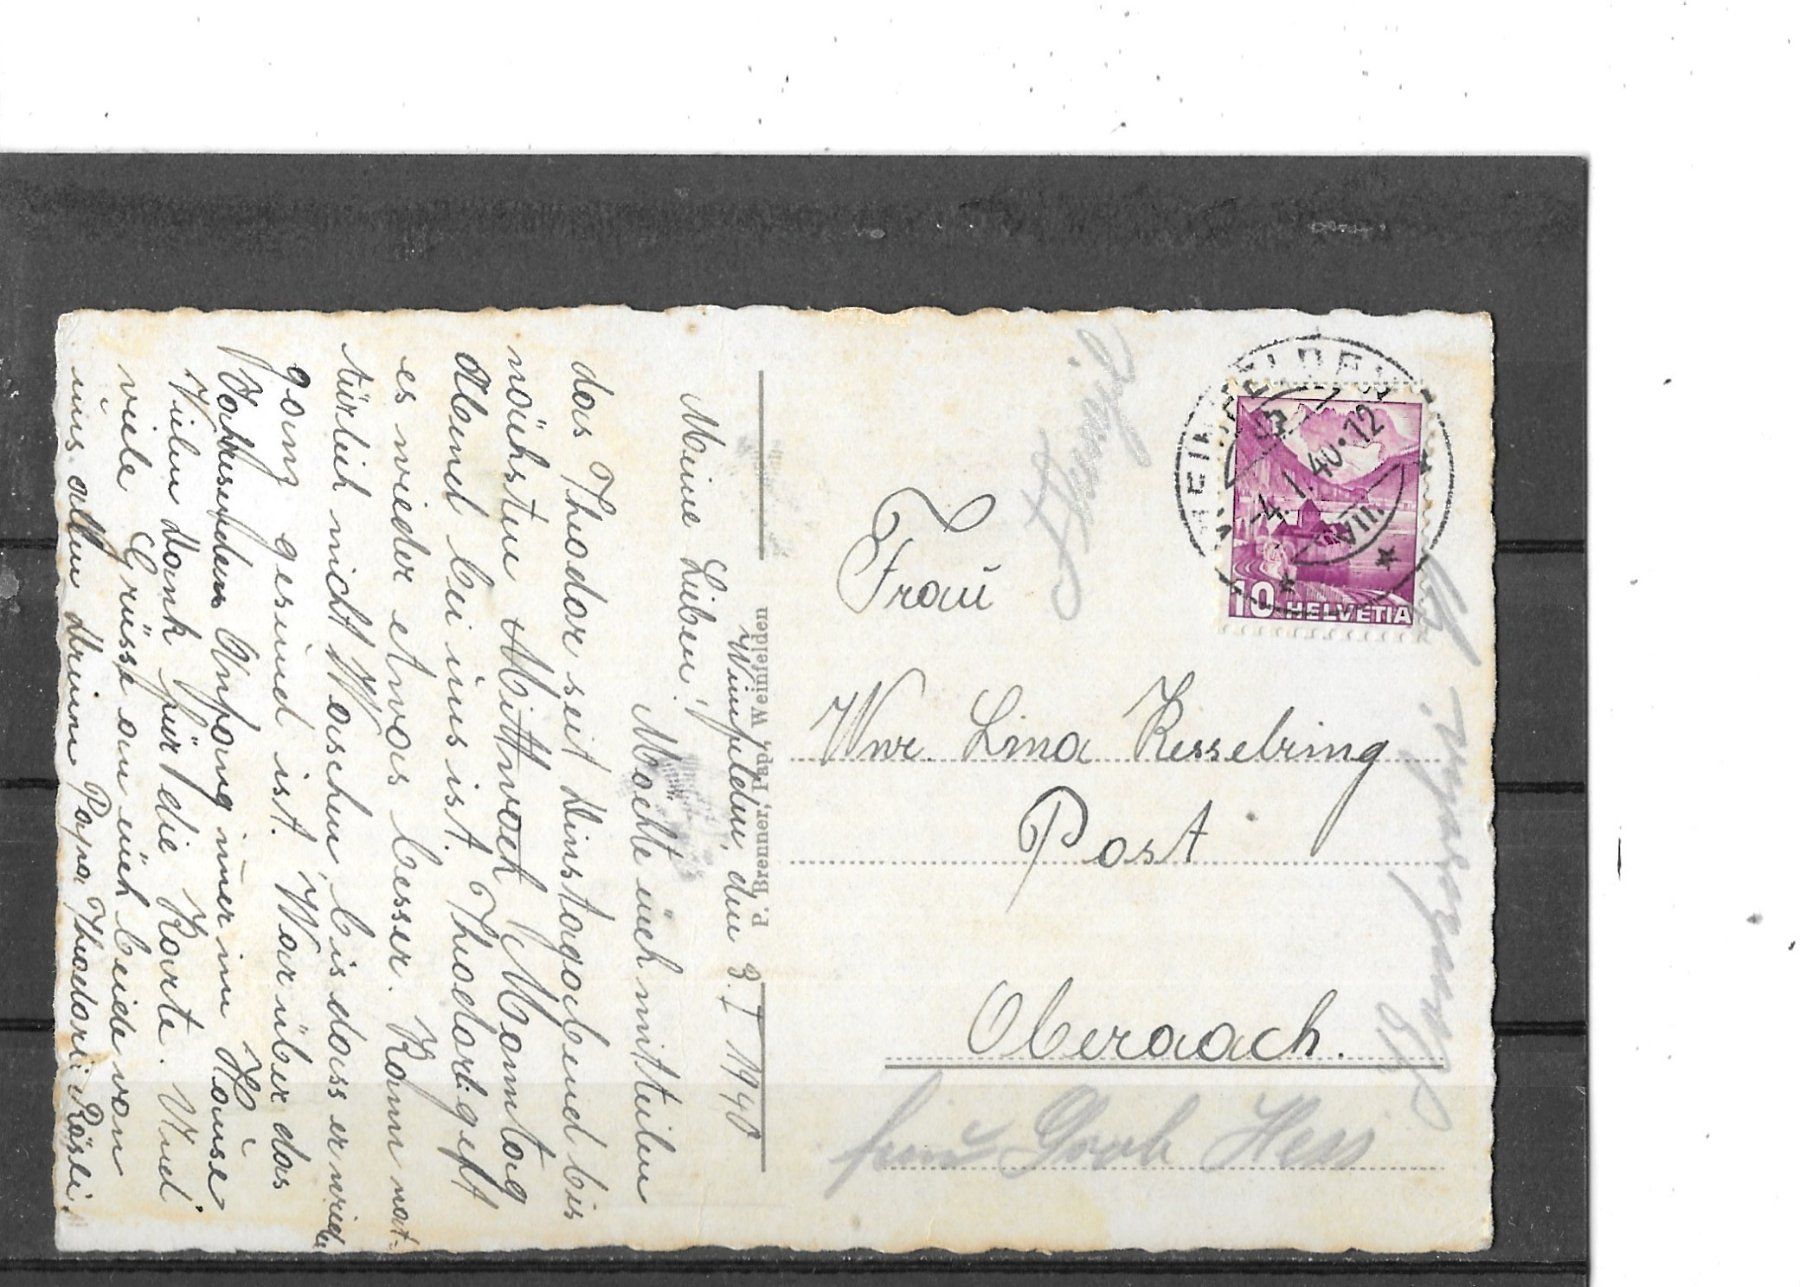 Weinfelden, den 3. I 1940
Meine Lieben!
Möchte üch mitteilen
das Theodor seit Dinstagabend bis
nächsten Mittwoch Monntag
Abend bei uns ist. Theodorli geht
es wieder etwas besser. Kann nat-
türlich nicht Waschen, bis dass er wieder
ganz gesund ist. War über das
Anfang imer im Hause
Vielen Dank für die Karte. Und
viele Grüsse an üch beide von
uns allen Drein Papa Theodorli u. Rösli.
P. Brenner, Pap., Weinfelden
WEINFELDEN
-4. I. 40-12
VIII
10 HELVETIA
Frau
Wwr. Lina Kesselring
Post
Oberaach.
Hess